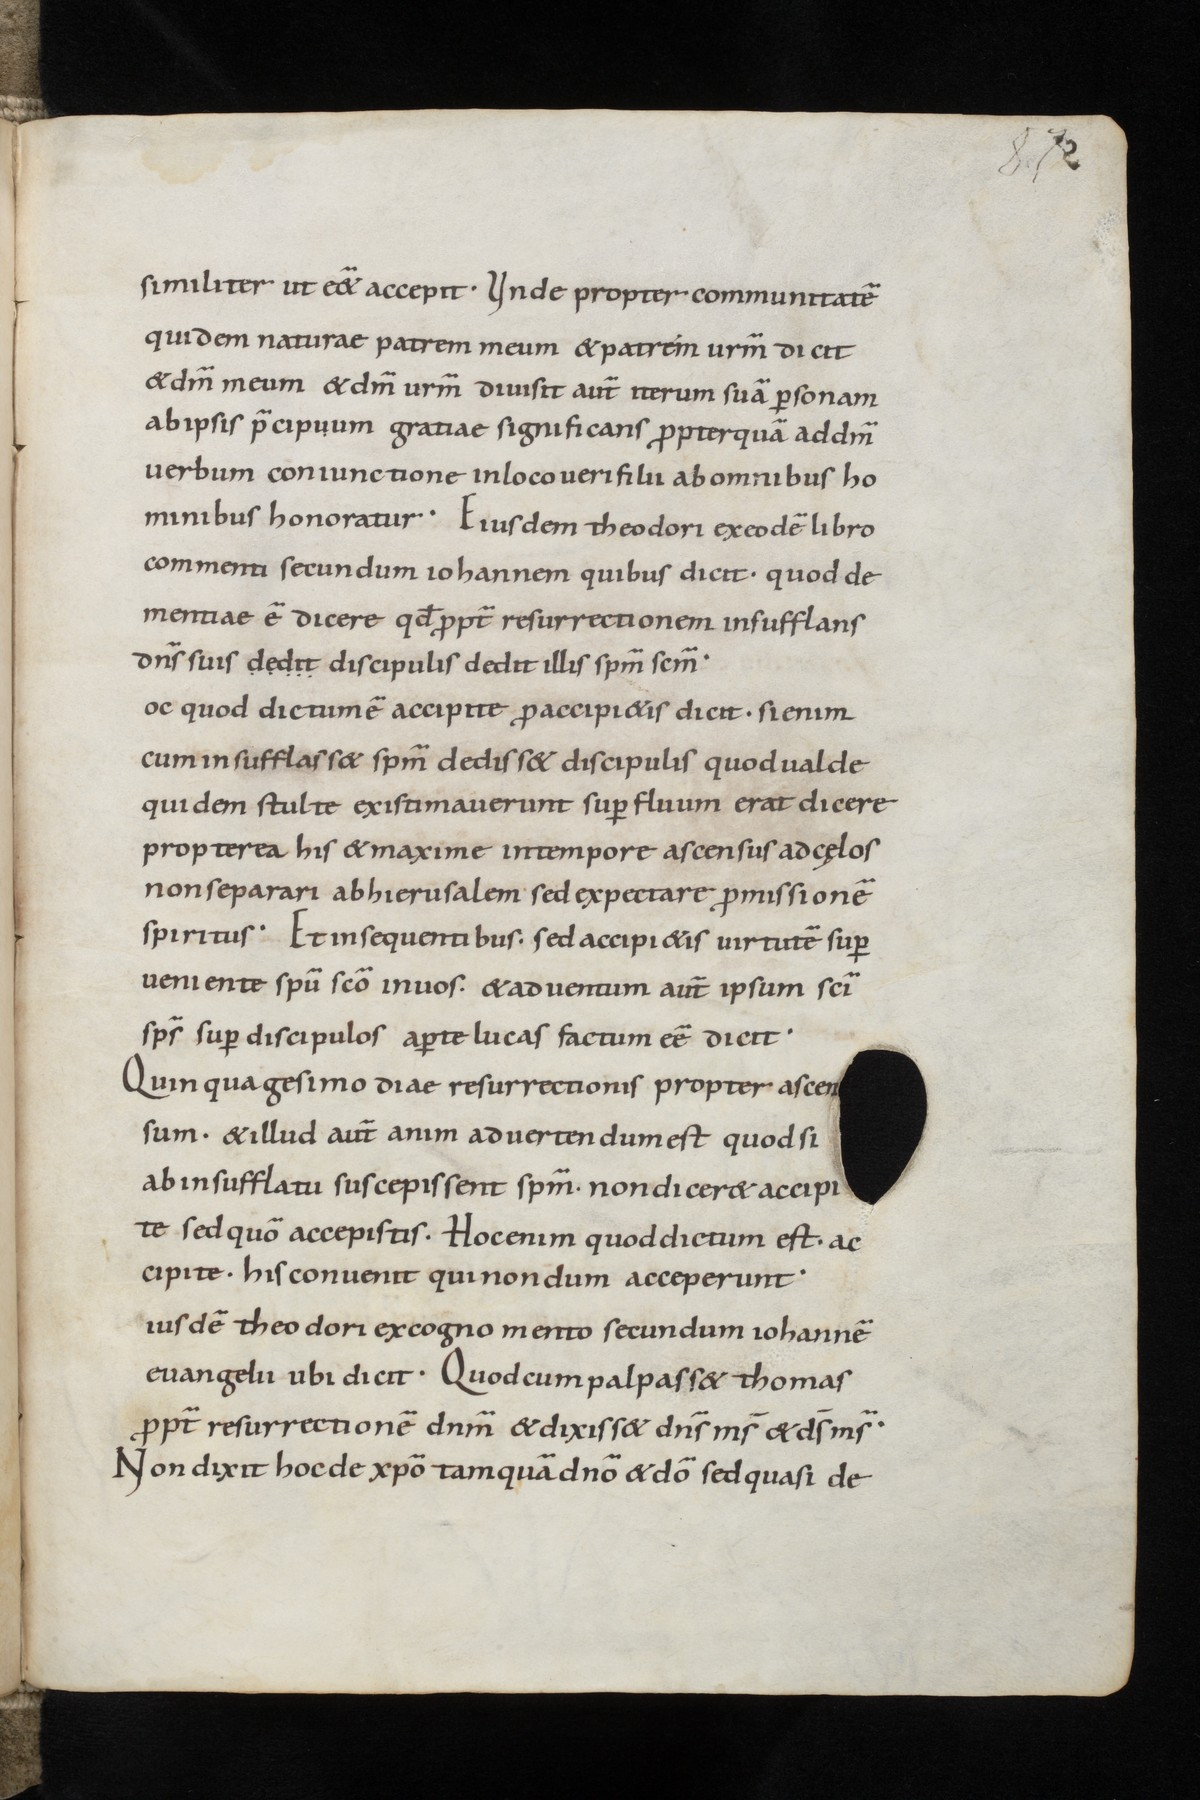 872
similiter ut eã& accepit· Unde propter communitatē
quidem naturae patrem meum & patrem urm̄ dicit
& dm̄ meum & dm̄ urm̄ diuisit aut̄ iterum suā ꝑsonam
ab ipsis p̄cipuum gratiae significans ꝓpter quā ad dm̄
uerbum coniunctione in loco ueri filii ab omnibus ho
minibus honoratur· Eiusdem theodori ex eodē libro
commenti secundum iohannem quibus dicit· quod de
mentiae ē dicere qd̄ ꝓpt̄ resurrectionem insufflans
dn̄s suis dedit discipulis dedit illis spm̄ scm̄·
oc quod dictum ē accipite ꝓ accipi&is dicit· si enim
cum insufflass& spm̄ dediss& discipulis quod ualde
quidem stulte existimauerunt suꝑfluum erat dicere
propterea his & maxime in tempore ascensus ad cęlos
non separari ab hierusalem sed expectare ꝓmissionē
spiritus· Et in sequentibus· sed accipi&is uirtutē suꝑ
ueniente spū scō in uos· & aduentum aut̄ ipsum sc̄i
sps̄ suꝑ discipulos aꝑte lucas factum eē dicit·
Quinquagesimo diae resurrectionis propter ascen
sum· & illud aut̄ anim aduertendum est quod si
ab insufflatu suscepissent spm̄· non dicer& accipi
te sed quō accepistis· Hoc enim quod dictum est· ac
cipite· his conuenit qui nondum acceperunt·
iusdē theodori ex cognomento secundum iohannē
euangelii ubi dicit· Quod cum palpass& thomas
ꝓpt̄ resurrectionē dnm̄ & dixiss& dn̄s ms̄ & ds̄ ms̄·
Non dixit hoc de xpō tamquā dnō & dō sed quasi de